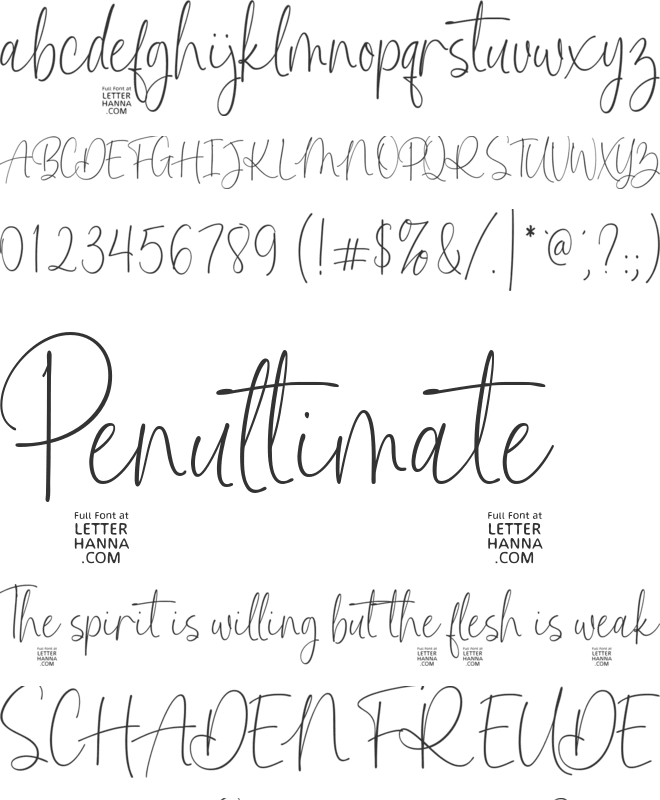 abcdefghijklmnopqrstuvwxyz
Full Font at
LETTER
HANNA
.COM
ABCDEFGHIJKLMNOPQRSTUVWXYZ
0123456789 (!#$%&/.|*@;?:;)
Penultimate
Full Font at Full Font at
LETTER LETTER
HANNA HANNA
.COM .COM
The spirit is willing but the flesh is weak
Full Font at Full Font at Full Font at Full Font at
LETTER LETTER LETTER LETTER
HANNA HANNA HANNA HANNA
.COM .COM .COM .COM
SCHADENFREUDE